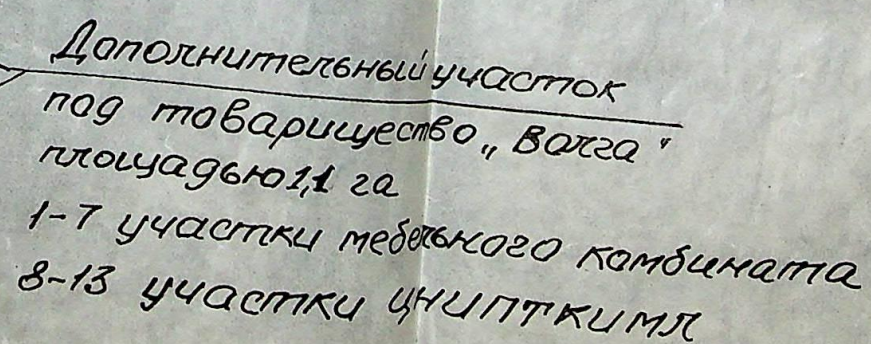 Дополнительный участок
под товарищество „Волга"
площадью 1,1 га
1-7 участки мебельного комбината
8-13 участки ЦНИПТКИМЛ